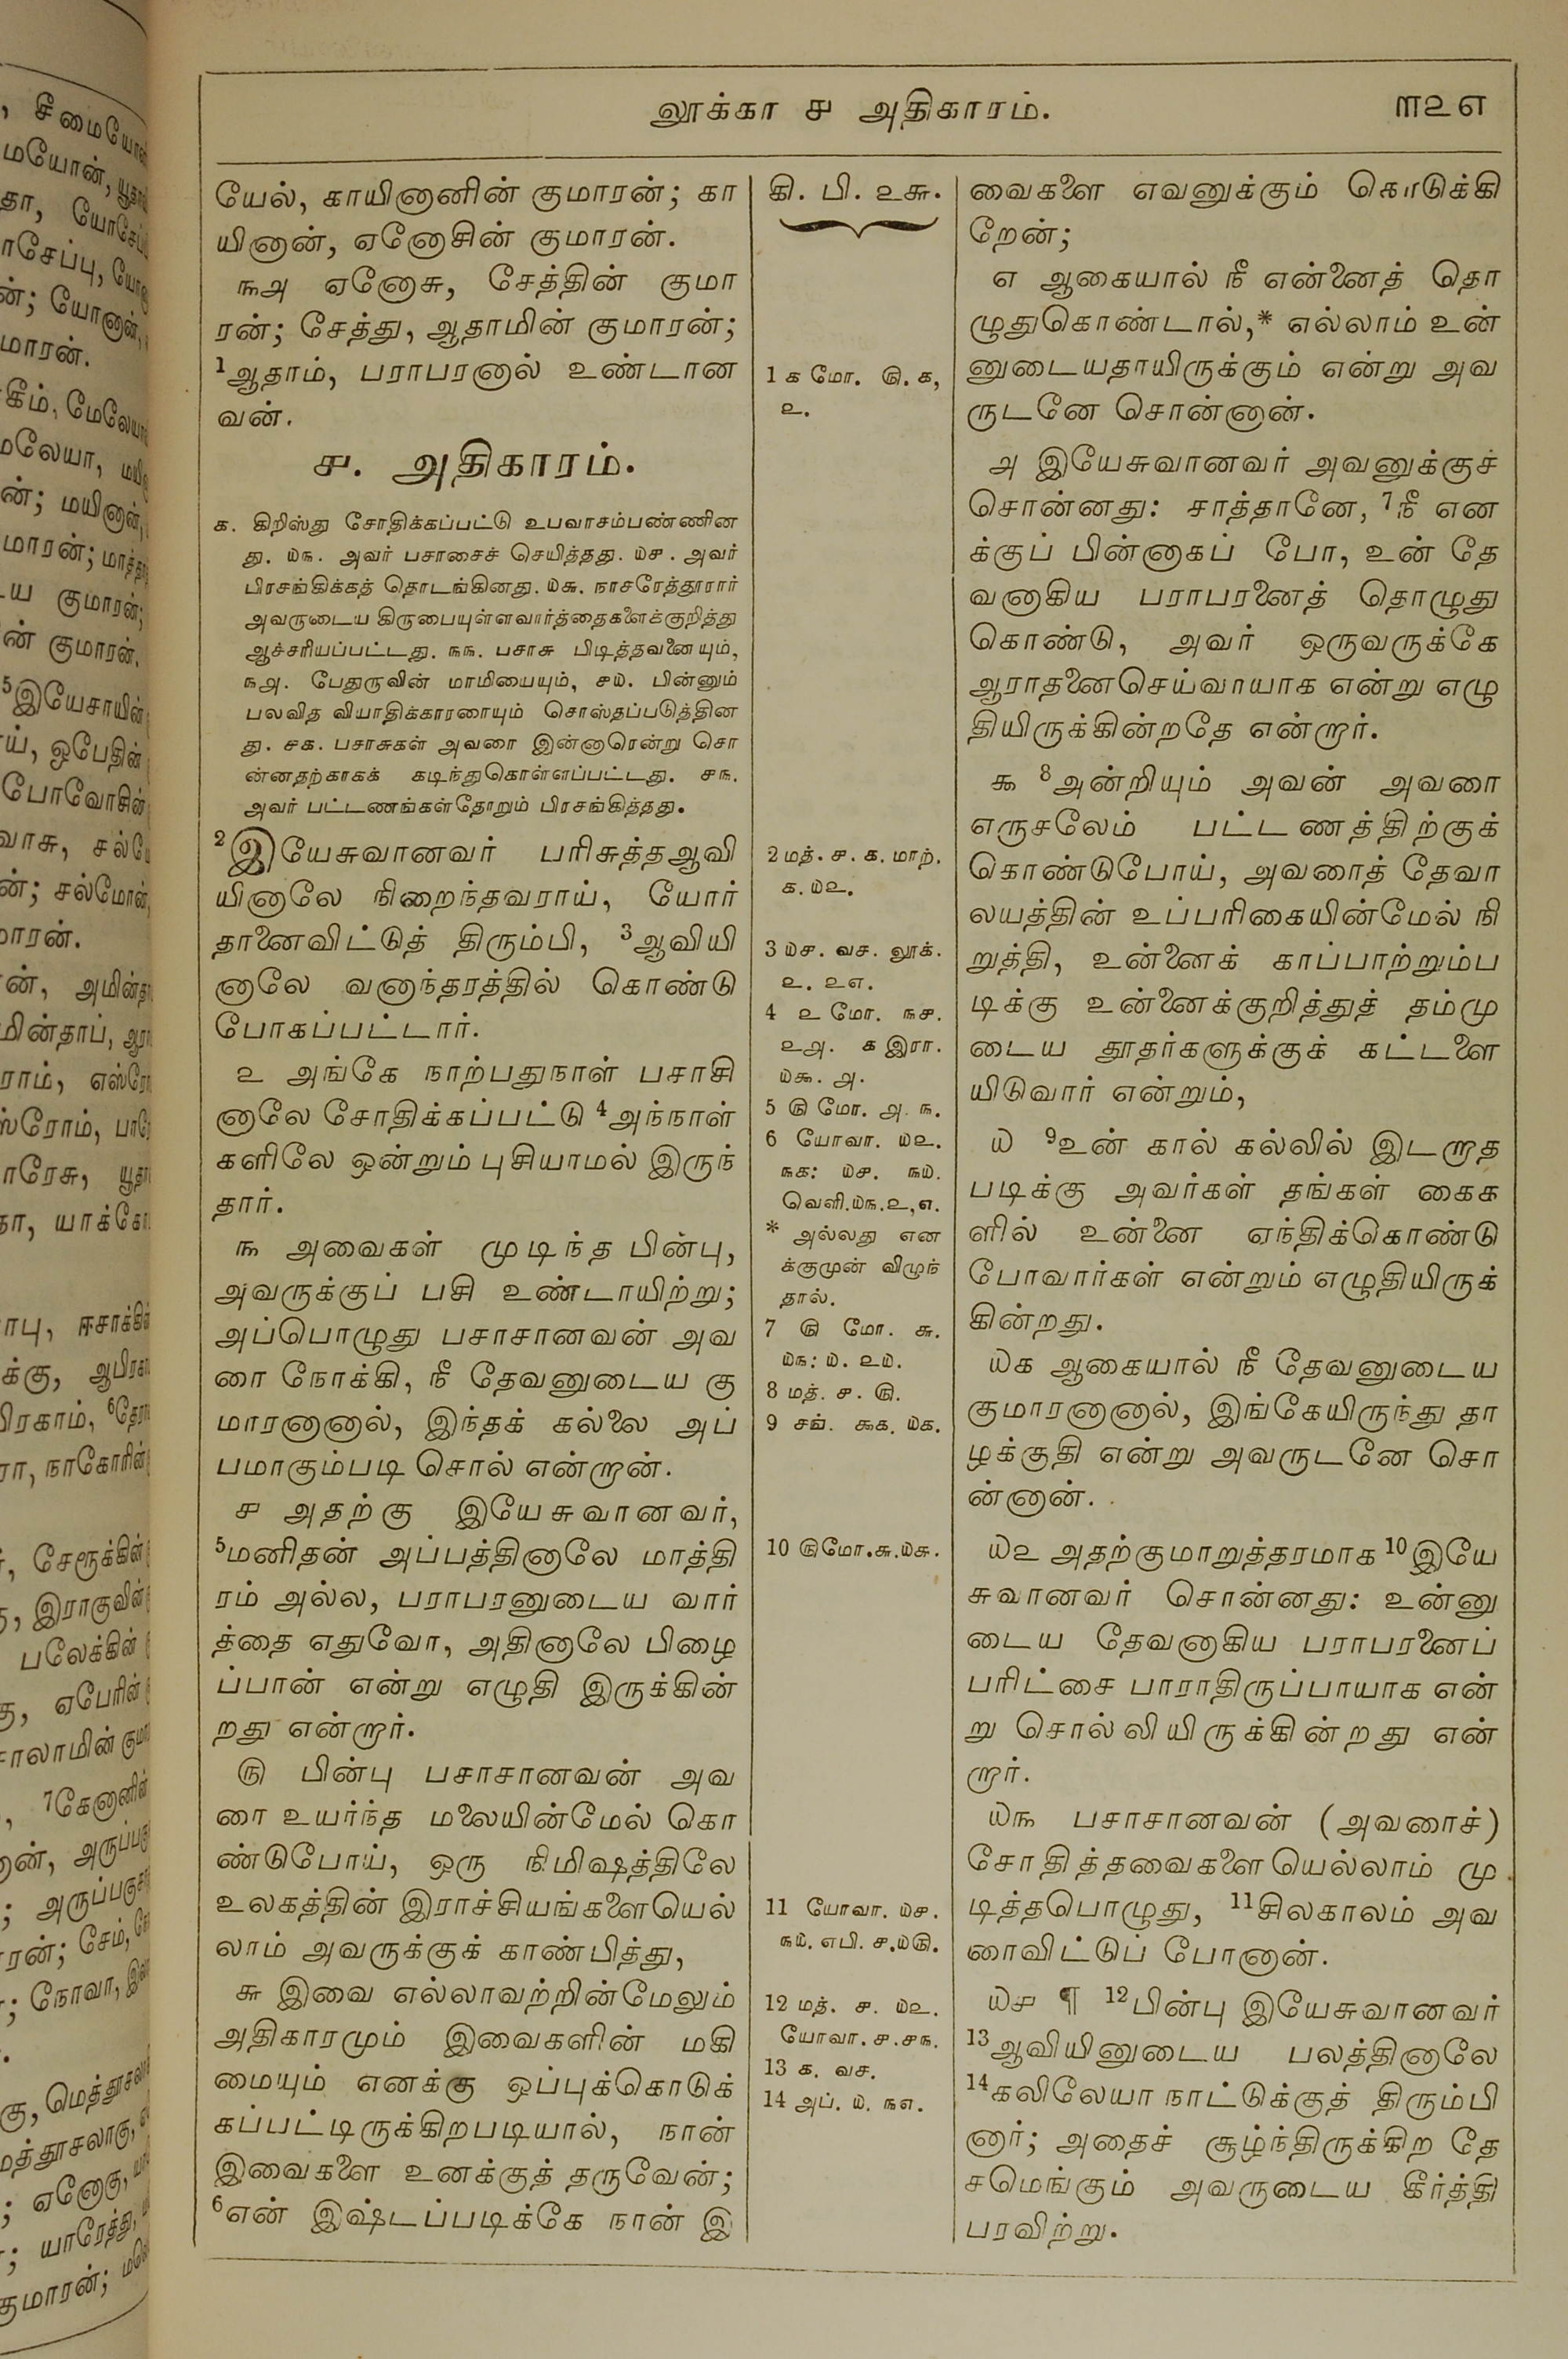 லூக்கா ௪ அதிகாரம்.
௩௨௭
யேல், காயினானின் குமாரன்; கா
யினான், ஏனோசின் குமாரன்.
௩௮ ஏனோசு, சேத்தின் குமா
ரன்; சேத்து, ஆதாமின் குமாரன்;
1ஆதாம், பராபரனால் உண்டான
வன்.
௪. அதிகாரம்.
௧. கிறிஸ்து சோதிக்கப்பட்டு உபவாசம்பண்ணின
து. ௰௩. அவர் பசாசைச் செயித்தது. ௰௪. அவர்
பிரசங்கிக்கத் தொடங்கினது. ௰௬. நாசரேத்தூரார்
அவருடைய கிருபையுள்ளவார்த்தைகளைக்குறித்து
ஆச்சரியப்பட்டது. ௩௩. பசாசு பிடித்தவனையும்,
௩௮. பேதுருவின் மாமியையும், ௪௰. பின்னும்
பலவித வியாதிக்காரரையும் சொஸ்தப்படுத்தின
து. ௪௧. பசாசுகள் அவரை இன்னாரென்று சொ
ன்னதற்காகக் கடிந்துகொள்ளப்பட்டது. ௪௩.
அவர் பட்டணங்கள்தோறும் பிரசங்கித்தது.
2இயேசுவானவர் பரிசுத்தஆவி
யினாலே நிறைந்தவராய், யோர்
தானைவிட்டுத் திரும்பி, 3ஆவியி
னாலே வனாந்தரத்தில் கொண்டு
போகப்பட்டார்.
௨ அங்கே நாற்பதுநாள் பசாசி
னாலே சோதிக்கப்பட்டு 4அந்நாள்
களிலே ஒன்றும் புசியாமல் இருந்
தார்.
௩ அவைகள் முடிந்த பின்பு,
அவருக்குப் பசி உண்டாயிற்று;
அப்பொழுது பசாசானவன் அவ
ரை நோக்கி, நீ தேவனுடைய கு
மாரனானால், இந்தக் கல்லை அப்
பமாகும்படி சொல் என்றான்.
௪ அதற்கு இயேசுவானவர்,
5மனிதன் அப்பத்தினாலே மாத்தி
ரம் அல்ல, பராபரனுடைய வார்
த்தை எதுவோ, அதினாலே பிழை
ப்பான் என்று எழுதி இருக்கின்
றது என்றார்.
௫ பின்பு பசாசானவன் அவ
ரை உயர்ந்த மலையின்மேல் கொ
ண்டுபோய், ஒரு நிமிஷத்திலே
உலகத்தின் இராச்சியங்களையெல்
லாம் அவருக்குக் காண்பித்து,
௬ இவை எல்லாவற்றின்மேலும்
அதிகாரமும் இவைகளின் மகி
மையும் எனக்கு ஒப்புக்கொடுக்
கப்பட்டிருக்கிறபடியால், நான்
இவைகளை உனக்குத் தருவேன்;
6என் இஷ்டப்படிக்கே நான் இ
கி. பி. ௨௬.
1 ௧ மோ. ௫. ௧,
௨.
2 மத். ௪. ௧. மாற்.
௧. ௰௨.
3 ௰௪. வச. லூக்.
௨. ௨௭.
4 ௨ மோ. ௩௪.
௨௮. ௧ இரா.
௰௯. ௮.
5 ௫ மோ. ௮. ௩.
6 யோவா. ௰௨.
௩௧: ௰௪. ௩௰.
வெளி.௰௩.௨,௭.
* அல்லது என
க்குமுன் விழுந்
தால்.
7 ௫ மோ. ௬.
௰௩: ௰. ௨௰.
8 மத். ௪. ௫.
9 சங். ௯௧. ௰௧.
10 ௫மோ.௬.௰௬.
11 யோவா. ௰௪.
௩௰. எபி. ௪.௰௫.
12 மத். ௪. ௰௨.
யோவா. ௪.௪௩.
13 ௧. வச.
14 அப். ௰. ௩௭.
வைகளை எவனுக்கும் கொடுக்கி
றேன்;
௭ ஆகையால் நீ என்னைத் தொ
ழுதுகொண்டால்,* எல்லாம் உன்
னுடையதாயிருக்கும் என்று அவ
ருடனே சொன்னான்.
௮ இயேசுவானவர் அவனுக்குச்
சொன்னது: சாத்தானே, 7நீ என
க்குப் பின்னாகப் போ, உன் தே
வனாகிய பராபரனைத் தொழுது
கொண்டு, அவர் ஒருவருக்கே
ஆராதனைசெய்வாயாக என்று எழு
தியிருக்கின்றதே என்றார்.
௯ 8அன்றியும் அவன் அவரை
எருசலேம் பட்டணத்திற்குக்
கொண்டுபோய், அவரைத் தேவா
லயத்தின் உப்பரிகையின்மேல் நி
றுத்தி, உன்னைக் காப்பாற்றும்ப
டிக்கு உன்னைக்குறித்துத் தம்மு
டைய தூதர்களுக்குக் கட்டளை
யிடுவார் என்றும்,
௰ 9உன் கால் கல்லில் இடறாத
படிக்கு அவர்கள் தங்கள் கைக
ளில் உன்னை ஏந்திக்கொண்டு
போவார்கள் என்றும் எழுதியிருக்
கின்றது.
௰௧ ஆகையால் நீ தேவனுடைய
குமாரனானால், இங்கேயிருந்து தா
ழக்குதி என்று அவருடனே சொ
ன்னான்.
௰௨ அதற்குமாறுத்தரமாக 10இயே
சுவானவர் சொன்னது: உன்னு
டைய தேவனாகிய பராபரனைப்
பரிட்சை பாராதிருப்பாயாக என்
று சொல்லியிருக்கின்றது என்
றார்.
௰௩ பசாசானவன் (அவரைச்)
சோதித்தவைகளையெல்லாம் மு
டித்தபொழுது, 11சிலகாலம் அவ
ரைவிட்டுப் போனான்.
௰௪ ¶ 12பின்பு இயேசுவானவர்
13ஆவியினுடைய பலத்தினாலே
14கலிலேயாநாட்டுக்குத் திரும்பி
னார்; அதைச் சூழ்ந்திருக்கிற தே
சமெங்கும் அவருடைய கீர்த்தி
பரவிற்று.